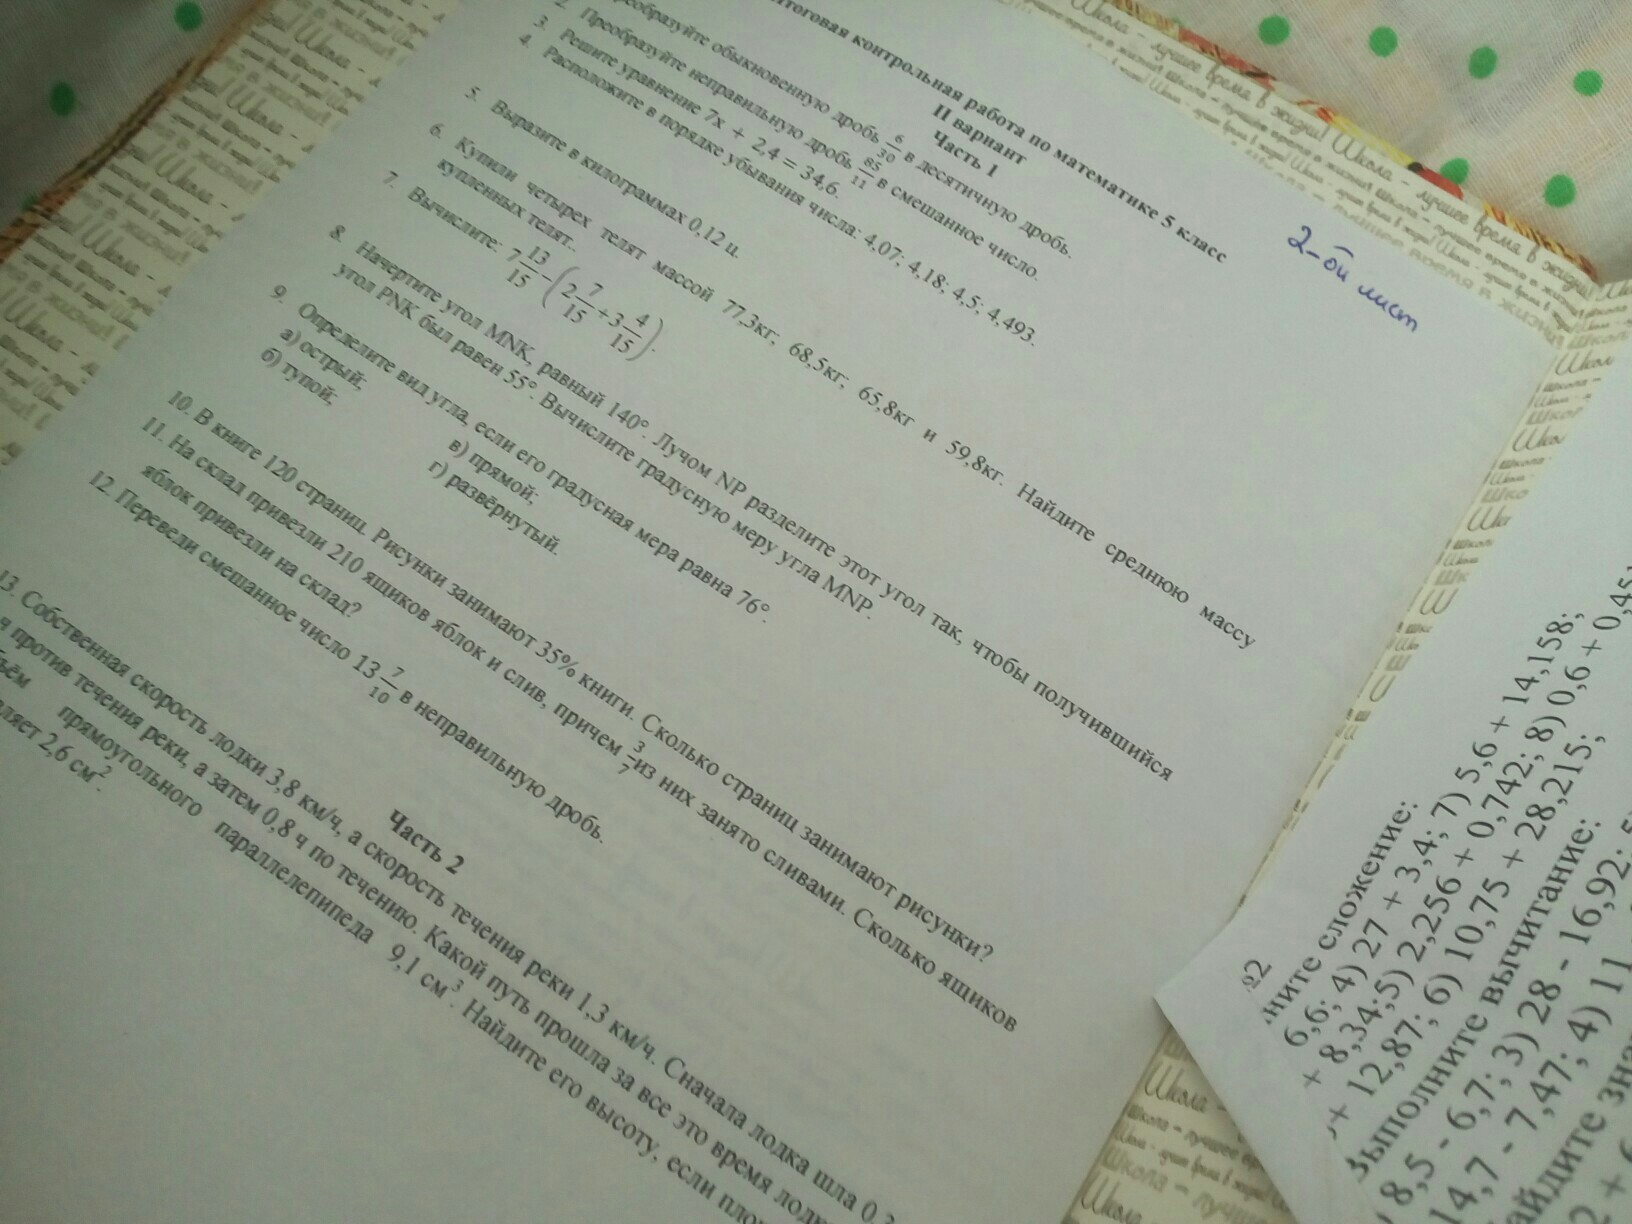 итоговая контрольная работа по математике 5 класс
II вариант
Часть 1
2-ой лист
преобразуйте обыкновенную дробь 6/30 в десятичную дробь.
2. Преобразуйте неправильную дробь 85/11 в смешанное число.
3. Решите уравнение 7х + 2,4 = 34,6.
4. Расположите в порядке убывания числа: 4,07; 4,18; 4,5; 4,493.
5. Выразите в килограммах 0,12 ц.
6. Купили четырех телят массой 77,3кг; 68,5кг; 65,8кг и 59,8кг. Найдите среднюю массу
купленных телят.
7. Вычислите: 7 13/15 - (2 7/15 + 3 4/15).
8. Начертите угол MNK, равный 140°. Лучом NP разделите этот угол так, чтобы получившийся
угол PNK был равен 55°. Вычислите градусную меру угла MNP.
9. Определите вид угла, если его градусная мера равна 76°.
а) острый; в) прямой;
б) тупой; г) развёрнутый.
10. В книге 120 страниц. Рисунки занимают 35% книги. Сколько страниц занимают рисунки?
11. На склад привезли 210 ящиков яблок и слив, причем 3/7 из них занято сливами. Сколько ящиков
яблок привезли на склад?
12. Переведи смешанное число 13 7/10 в неправильную дробь.
Часть 2
13. Собственная скорость лодки 3,8 км/ч, а скорость течения реки 1,3 км/ч. Сначала лодка шла
ч против течения реки, а затем 0,8 ч по течению. Какой путь прошла за все это время
прямоугольного параллелепипеда 9,1 см³. Найдите его высоту, если
2,6 см².
сложение:
6,6; 4) 27 + 3,4; 7) 5,6 + 14,158;
+ 8,34; 5) 2,256 + 0,742; 8) 0,6 + 0,451
+ 12,87; 6) 10,75 + 28,215;
Выполните вычитание:
8,5 - 6,7; 3) 28 - 16,92;
14,7 - 7,47; 4) 11
Школа - лучшее время в жизни!